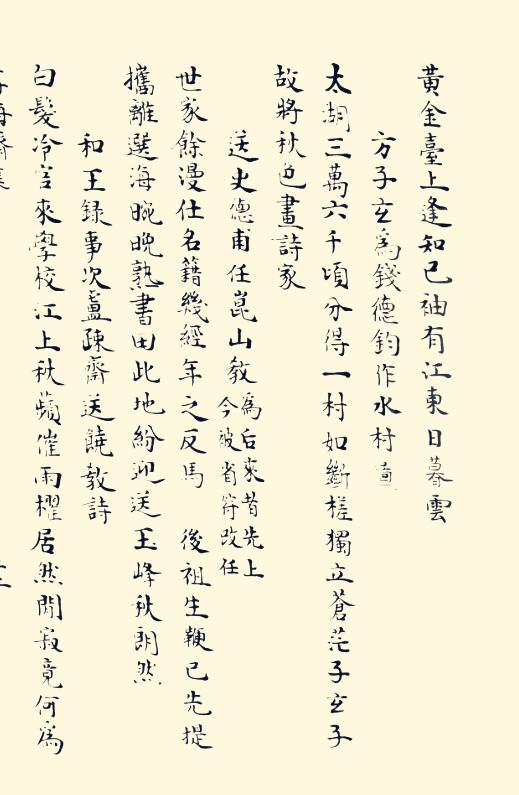 黃金臺上逢知己袖有江東日暮雲
方子玄為錢德鈞作水村
太湖三萬六千頃分得一村如斷槎獨立蒼茫子玄子
故將秋色畫詩家
送史德甫任崑山教
為后來昔先上
今被省符改任
世家餘漫仕名籍幾經年之反馬 後祖生鞭已先提
攜離選海晼晚熟書田此地紛迎送玉峰秋朗然
和王録事次盧疎齋送饒教詩
白髮冷官來學校江上秋蘋催雨櫂居然閒寂竟何為